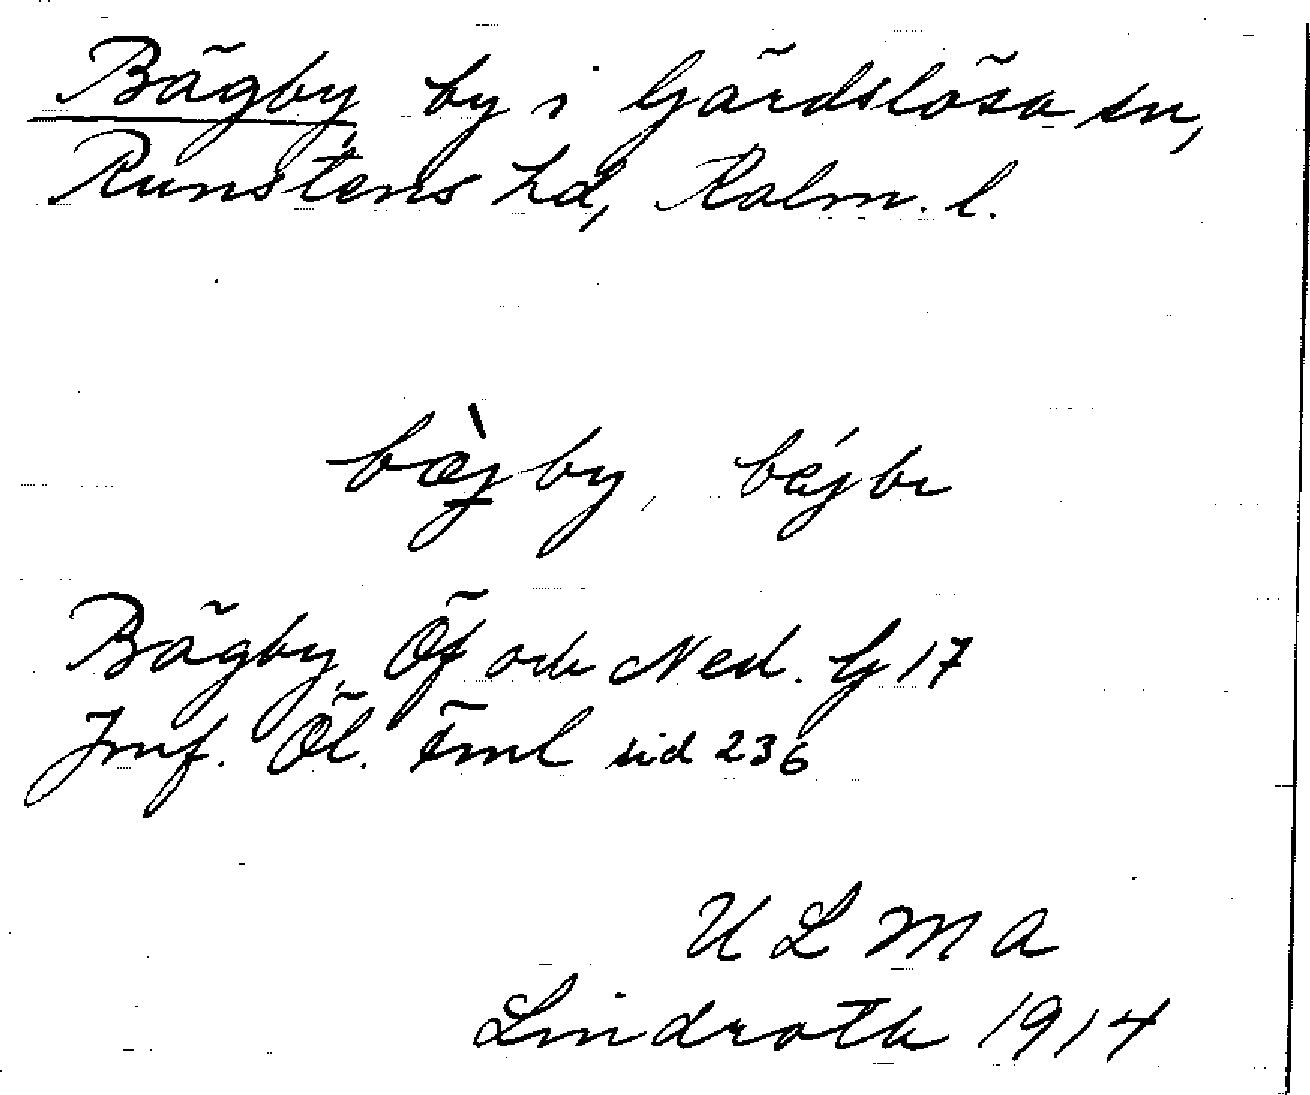 Bägby by i Gärdslösa sn,
Runstens hd, Kalm. l.
bæ̀jby, bájbı
Bägby, Öf och Ned. G 17
Jmf. Öl. Fml sid 236
U L M A
Lindroth 1914